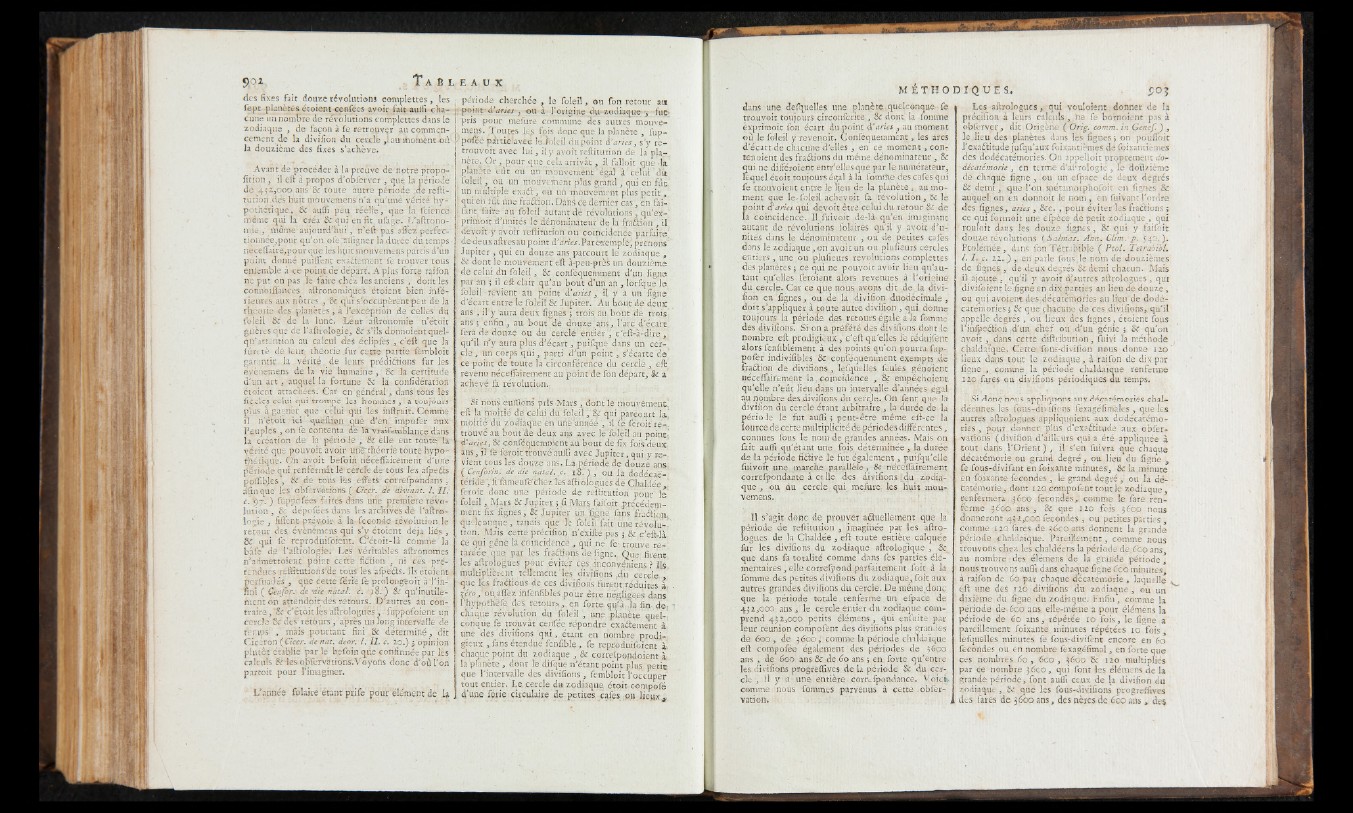 902 TABLEAUX
des fixes fait douze révolutions complettes, les
sept planètes étoient censées avoir fait aussi cha-
cune un nombre de révolutions complettes dans le
zodiaque, de façon à se retrouver au commen-
cement de la division du cercle, au moment où
la douzième des fixes s'achève.
Avant de procéder à la preuve de notre propo-
sition, il est à propos d'observer, que la période
de 432,000 ans & toute autre période de resti-
tution des huit mouvemens n'a qu'une vérité hy-
pothétique, & aussi peu réelle, que la science
même qui la créa & qui en fit usage. L'astrono-
mie, même aujourd'hui, n'est pas assez perfec-
tionnée, pour qu'on ose assigner la durée du temps
nécessaire, pour que les huit mouvemens partis d'un
point donné puissent exactement se trouver tous
ensemble à ce point de départ. A plus forte raison
ne put-on pas le faire chez les anciens, dont les
connoissances astronomiques étoient bien infé-
rieures aux nôtres, & qui s'occupèrent peu de la
théorie des planètes, à l'exception de celles du
soleil & de la lune. Leur astronomie n'étoit
guères que de l'astrologie, & s'ils donnoient quel-
qu'attention au calcul des éclipses, c'est que la
sureté de leur théorie sur cette partie sembloit
garantir la vérité de leurs prédictions sur les
évènemens de la vie humaine, & la certitude
d'un art, auquel la fortune & la considération
étoient attachées. Car en général, dans tous les
siècles celui qui trompe les hommes, a toujours
plus à gagner que celui qui les instruit. Comme
il n'étoit ici question que d'en imposer aux
Peuples, on se contenta de la vraisemblance dans
la création de la période, & elle eut toute la
vérité que pouvoit avoir une théorie toute hypo-
thétique. On avoit besoin nécessairement d'une
période qui renfermât le cercle de tous les aspects
possibles, & de tous les effets correspondans,
afin que les observations (Cicer. de divinat. l. II.
c. 97.) supposées faites dans une première révo-
lution, & déposées dans les archives de l'astro-
logie, fissent prévoir à la seconde révolution le
retour des évènemens qui s'y étoient déja liés,
& qui se reproduisoient. C'étoit-là comme la
base de l'astrologie. Les véritables astronomes
n'admettoient point cette fiction, ni ces pré-
tendues restitutions de tous les aspects. Ils étoient
persuadés, que cette série se prolongeoit à l'in-
fini (Censor. de die natal. c. 18.) & qu'inutile-
ment on attendoit des retours. D'autres au con-
traire, & c'étoit les astrologues, supposoient un
cercle & des retours, après un long intervalle de
temps, mais pourtant fini & déterminé, dit
Cicéron (Cicer. de nat. deor. l. II. c. 20.); opinion
plutôt établie par le besoin que confirmée par les
calculs & les observations. Voyons donc d'où l'on
partoit pour l'imaginer.
L'année solaire étant prise pour élément de la
période cherchée, le soleil, ou son retour au
point d'aries, ou à l'origine du zodiaque, fut
pris pour mesure commune des autres mouve-
mens. Toutes les fois donc que la planète, sup-
posée partie avec le soleil du point d'aries, s'y re-
trouvoit avec lui, il y avoit restitution de la pla-
nète. Or, pour que cela arrivât, il falloit que la
planète eût ou un mouvement égal à celui du
soleil, ou un mouvement plus grand, qui en fût
un multiple exact, ou un mouvement plus petit,
qui en fût une fraction. Dans ce dernier cas, en fai-
sant faire au soleil autant de révolutions, qu'ex-
primoit d'unités le dénominateur de la fraction, il
devoit y avoir restitution ou coincidence parfaite
de deux astres au point d'aries. Par exemple, prenons
Jupiter, qui en douze ans parcourt le zodiaque,
& dont le mouvement est à-peu-près un douzième
de celui du soleil, & conséquemment d'un signe
par an; il est clair qu'au bout d'un an, lorsque le
soleil revient au point d'aries, il y a un signe
d'écart entre le soleil & Jupiter. Au bout de deux
ans, il y aura deux signes; trois au bout de trois
ans; enfin, au bout de douze ans, l'arc d'écart
sera de douze ou du cercle entier, c'est-à-dire,
qu'il n'y aura plus d'écart, puisque dans un cer-
cle, un corps qui, parti d'un point, s'écarte de
ce point de toute la circonférence du cercle, est
revenu nécessairement au point de son départ, & a
achevé sa révolution.
Si nous eussions pris Mars, dont le mouvement
est la moitié de celui du soleil, & qui parcourt la
moitié du zodiaque en une année, il se feroit re-
trouvé au bout de deux ans avec le soleil au point
d'aries, & conséquemment au bout de six fois deux
ans, il se feroit trouvé aussi avec Jupiter, qui y re-
vient tous les douze ans. La période de douze ans
(Censorin. de die natal. c. 18.), ou la dodécaé-
téride, si fameuse chez les astrologues de Chaldée,
seroit donc une période de restitution pour le
soleil, Mars & Jupiter; si Mars faisoit précisém-
ment six signes, & Jupiter un signe sans fraction
quelconque, tandis que le soleil fait une révolu-
tion. Mais cette précision n'existe pas; & c'est-là
ce qui gêne la coincidence, qui ne se trouve re-
tardée que par les fractions de signe. Que firent
les astrologues pour éviter ces inconvéniens? Ils
multiplièrent tellement les divisions du cercle,
que les fractions de ces divisions furent réduites à
zéro, ou assez insensibles pour être négligées dans
l'hypothèse des retours, en sorte qu'à la fin de
chaque révolution du soleil, une planète quel-
conque se trouvât censée répondre exactement à
une des divisions qui, étant en nombre prodi-
gieux, sans étendue sensible, se reproduisoient à
chaque point du zodiaque, & correspondoient à
la planète, dont le disque n'étant point plus petit
que l'intervalle des divisions, sembloit l'occuper
tout entier. Le cercle du zodiaque étoit composé
d'une série circulaire de petites cases ou lieux,
MÉTHODIQUES. 903
dans une desquelles une planète quelconque se
trouvoit toujours circonscrite, & dont la somme
exprimoit son écart du point d'aries, au moment
où le soleil y revenoit. Conséquemment, les arcs
d'écart de chacune d'elles, en ce moment, con-
tenoient des fractions du même dénominateur, &
qui ne différoient entr'elles que par le numérateur,
lequel étoit toujours égal à la somme des cases qui
se trouvoient entre le lieu de la planète, au mo-
ment que le soleil achevoit sa révolution, & le
point d'aries qui devoit être celui du retour & de
la coincidence. Il suivoit de-là qu'en imaginant
autant de révolutions solaires qu'il y avoit d'u-
nités dans le dénominateur, ou de petites cases
dans le zodiaque, on avoit un ou plusieurs cercles
entiers, une ou plusieurs révolutions complettes
des planètes; ce qui ne pouvoit avoir lieu qu'au-
tant qu'elles seroient alors revenues à l'origine
du cercle. Car ce que nous avons dit de la divi-
sion en signes, ou de la division duodécimale,
doit s'appliquer à toute autre division, qui donne
toujours la période des retours égale à la somme
des divisions. Si on a préféré des divisions dont le
nombre est prodigieux, c'est qu'elles se réduisent
alors sensiblement à des points qu'on pourra sup-
poser indivisibles & conséquemment exempts de
fraction de divisions, lesquelles seules gênoient
nécessairement la coincidence, & empêchoient
qu'elle n'eût lieu dans un intervalle d'années égal
au nombre des divisions du cercle. On sent que la
division du cercle étant arbitraire, la durée de la
période le fut aussi; peut-être même est-ce la
source de cette multiplicité de périodes différentes,
connues sous le nom de grandes années. Mais on
sait aussi qu'étant une fois déterminée, la durée
de la période fictive le fut également, puisqu'elle
suivoit une marche parallèle, & nécessairement
correspondante à celle des divisions du zodia-
que, ou au cercle qui mesure les huit mou-
vemens.
Il s'agit donc de prouver actuellement que la
période de restitution, imaginée par les astro-
logues de la Chaldée, est toute entière calquée
sur les divisions du zodiaque astrologique, &
que dans sa totalité comme dans ses parties élé-
mentaires, elle correspond parfaitement soit à la
somme des petites divisions du zodiaque, soit aux
autres grandes divisions du cercle. De même donc
que la période totale renferme un espace de
432,000 ans, le cercle entier du zodiaque com-
prend 432,000 petits élémens, qui ensuite par
leur réunion composent des divisions plus grandes
de 600, de 3600; comme la période chaldaïque
est composée également des périodes de 3600
ans, de 600 ans & de 60 ans; en sorte qu'entre
les divisions progressives de la période & du cer-
cle, il y a une entière correspondance. Voici
comme nous sommes parvenus à cette obser-
vation.
Les astrologues, qui vouloient donner de la
précision à leurs calculs, ne se bornoient pas à
observer, dit Origène (Orig. comm. in Genes.),
le lieu des planètes dans les signes; on poussoit
l'exactitude jusqu'aux soixantièmes de soixantièmes
des dodécatémories. On appelloit proprement do-
décatémorie, en terme d'astrologie, le douzième
de chaque signe, ou un espace de deux degrés
& demi, que l'on métamorphosoit en signes &
auquel on en donnoit le nom, en suivant l'ordre
des signes, aries, &c., pour éviter les fractions;
ce qui formoit une espèce de petit zodiaque, qui
rouloit dans les douze signes, & qui y faisoit
douze révolutions (Salmas. Ann. Clim. p. 540.).
Ptolémée, dans son Tétrabible (Ptol. Tetrabibl.
l. I. c. 22.), en parle sous le nom de douzièmes
de signes, de deux degrés & demi chacun. Mais
il ajoute, qu'il y avoit d'autres astrologues, qui
divisoient le signe en dix parties au lieu de douze,
ou qui avoient des décatémories au lieu de dodé-
catémories; & que chacune de ces divisions, qu'il
appelle degrés, ou lieux des signes, étoient sous
l'inspection d'un chef ou d'un génie; & qu'on
avoit, dans cette distribution, suivi la méthode
chaldaïque. Cette sous-division nous donne 120
lieux dans tout le zodiaque, à raison de dix par
signe, comme la période chaldaïque renferme
120 sares ou divisions périodiques du temps.
Si donc nous appliquons aux décatémories chal-
déennes les sous-divisions sexagésimales, que les
autres astrologues appliquoient aux dodécatémo-
ries, pour donner plus d'exactitude aux obser-
vations (division d'ailleurs qui a été appliquée à
tout dans l'Orient), il s'en suivra que chaque
décatémorie ou grand degré, ou lieu du signe,
se sous-divisant en soixante minutes, & la minute
en soixante secondes, le grand degré, ou la dé-
catémorie, dont 120 composent tout le zodiaque,
renfermera 3600 secondes, comme le sare ren-
ferme 3600 ans, & que 120 fois 3600 nous
donneront 432,000 secondes, ou petites parties,
comme 120 sares de 3600 ans donnent la grande
période chaldaïque. Pareillement, comme nous
trouvons chez les chaldéens la période de 600 ans,
au nombre des élémens de la grande période,
nous trouvons aussi dans chaque signe 600 minutes,
à raison de 60 par chaque décatémorie, laquelle
est une des 120 divisions du zodiaque, ou un
dixième du signe du zodiaque. Enfin, comme la
période de 600 ans elle-même a pour élémens la
période de 60 ans, répétée 10 fois, le signe a
pareillement soixante minutes répétées 10 fois,
lesquelles minutes se sous-divisent encore en 60
secondes ou en nombre sexagésimal, en sorte que
ces nombres 60, 600, 3600 & 120 multipliés
par ce nombre 3600, qui sont les élémens de la
grande période, sont aussi ceux de la division du
zodiaque, & que les sous-divisions progressives
des sares de 3600 ans, des nères de 600 ans, des